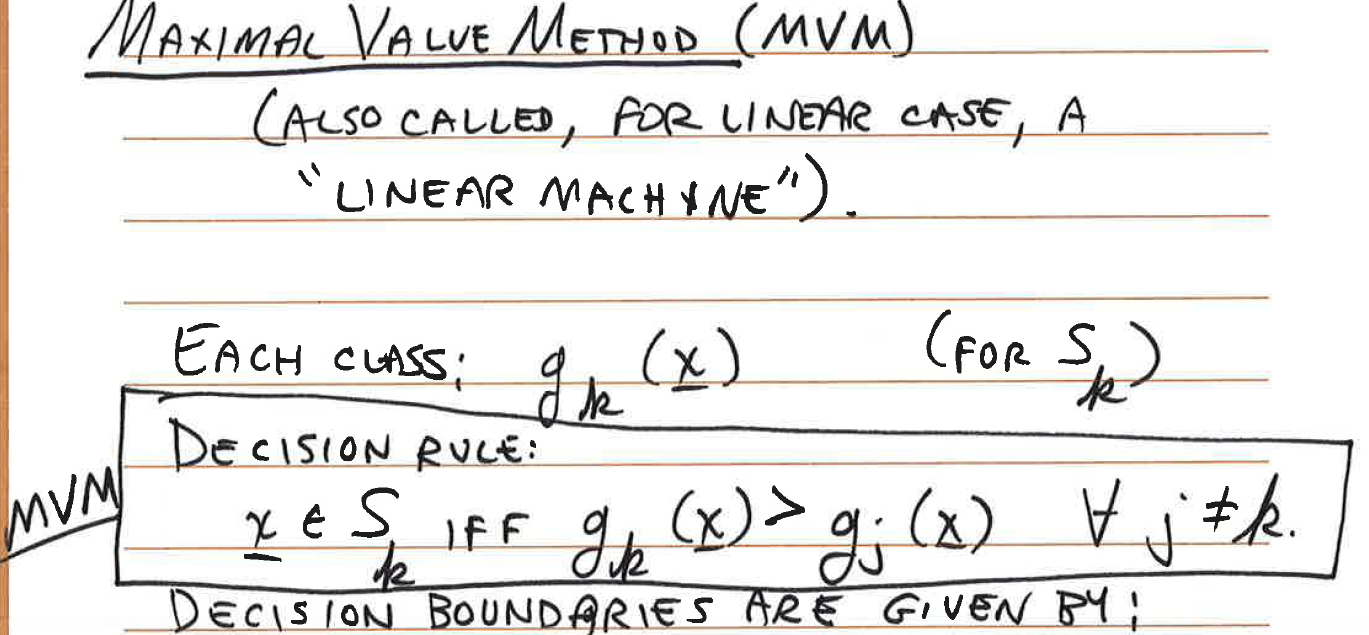 MAXIMAL VALUE METHOD (MVM)
(ALSO CALLED, FOR LINEAR CASE, A
"LINEAR MACHINE").
EACH CLASS: g_k (x) (FOR S_k)
DECISION RULE:
MVM
x ∈ S_k IFF g_k (x) > g_j (x) ∀ j ≠ k.
DECISION BOUNDARIES ARE GIVEN BY: